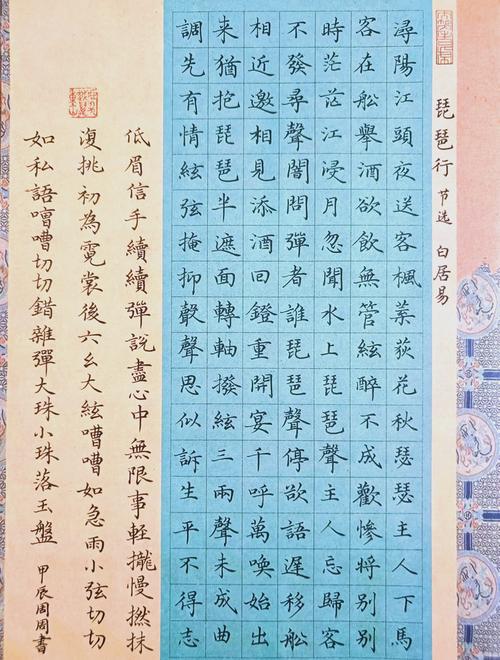 琵琶行 节选 白居易
潯陽江頭夜送客楓葉荻花秋瑟瑟主人下馬
客在舩舉酒欲飲無管絃醉不成歡慘將別別
時茫茫江浸月忽聞水上琵琶聲主人忘歸客
不發尋聲闇問彈者誰琵琶聲停欲語遲移舩
相近邀相見添酒回鐙重開宴千呼萬喚始出
来猶抱琵琶半遮面轉軸撥絃三兩聲未成曲
調先有情絃弦掩抑聲聲思似訴生平不得志
低眉信手續續彈說盡心中無限事軽攏慢撚抹
復挑初為霓裳後六幺大絃嘈嘈如急雨小弦切切
如私語嘈嘈切切錯雜彈大珠小珠落玉盤 甲辰周周書